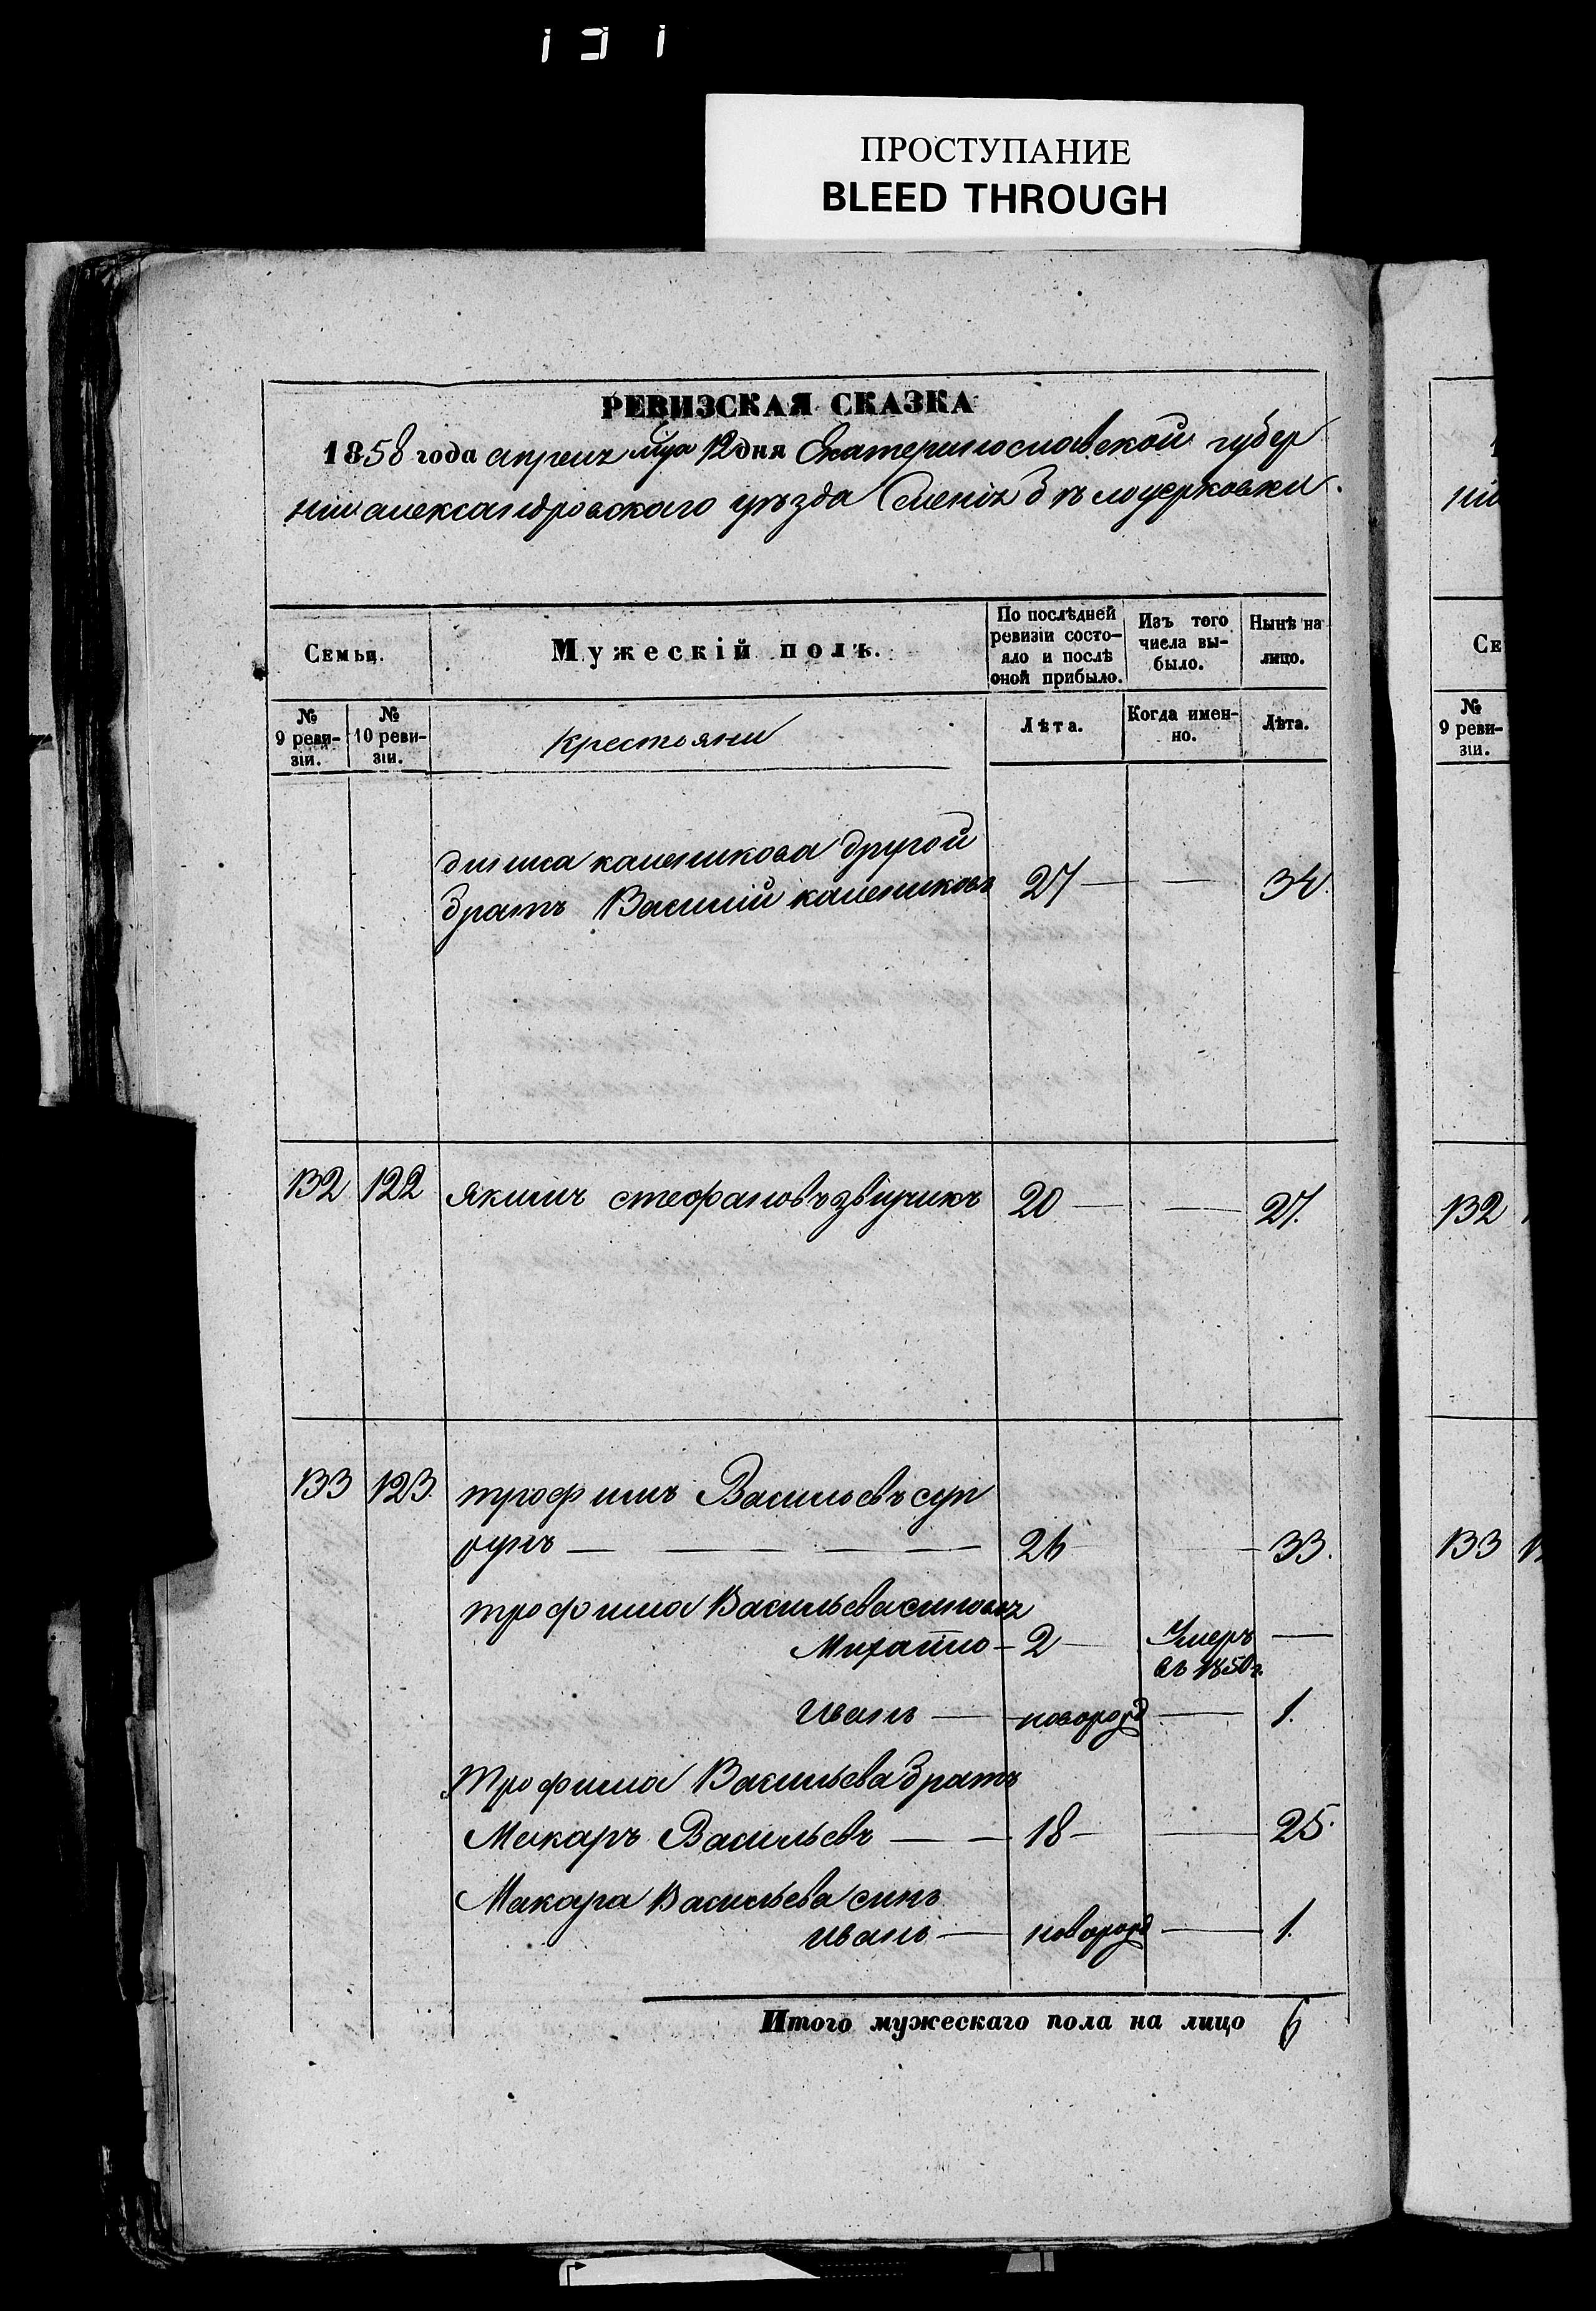 ПРОСТУПАНИЕ
BLEED THROUGH
РЕВИЗСКАЯ СКАЗКА
1858 года апреля м̃ца 12 дня Екатеринославской губер
нии александровского уезда
Семьи.
Мужескій полъ.
По послѣдней ревизіи состо-
яло и послѣ
оной прибыло.
Изъ того
числа вы-
было.
Нынѣ на
лицо.
№
9 реви-
зіи.
№
10 реви-
зіи.
крестьяни
Лѣта.
Когда имен-
но.
Лѣта.
каленикова другой
братъ Василий калениковъ 27 — — 34.
132 122 Якимъ стефановъ звичикъ 20 — — 27.
133 123. трофимъ Васильевъ суп
рунъ — — — — 26 — 33.
трофима Васильева синовья
Михайло — 2 — Умеръ —
въ 1850 г.
Иванъ — новорож — 1.
Трофима Васильева братъ
Макаръ Васильевъ — — 18 — — 25.
Макара Васильева синъ
иванъ — новорож — 1.
Итого мужескаго пола на лицо 6
СЕ
№
9 реви-
зіи.
132
133